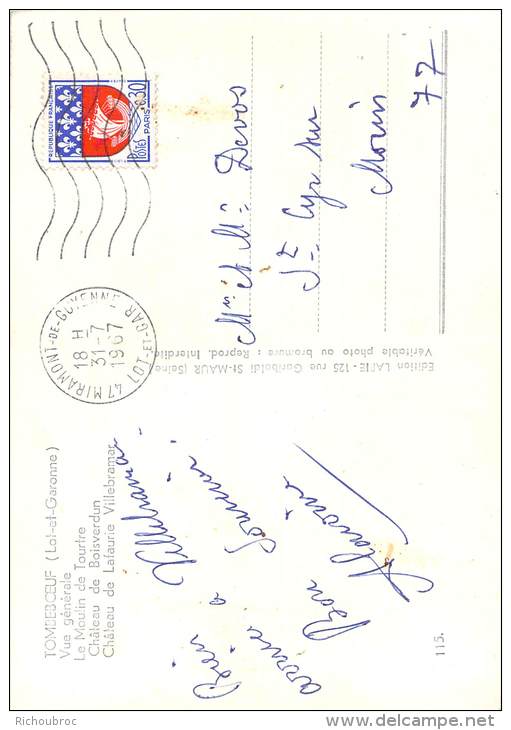 TOMBEBŒUF (Lot-et-Garonne)
Vue générale
Le Moulin de Tourtre
Château de Boisverdun
Château de Lafaurie Villebramar
Bien
arrivé a Villebramar
Bon Souvenir
115.
Edition LAPIE - 125 rue Garibaldi St-MAUR (Seine
Véritable photo au bromure : Reprod. Interdite
47 MIRAMONT-DE-GUYENNE
LOT-ET-GAR.
18 H
31-7
1967
REPUBLIQUE FRANÇAISE
0,30
POSTES
PARIS
Mr et Me Devos
St Cyr sur
Morin
77
© Richoubroc
http://www.delcampe.net